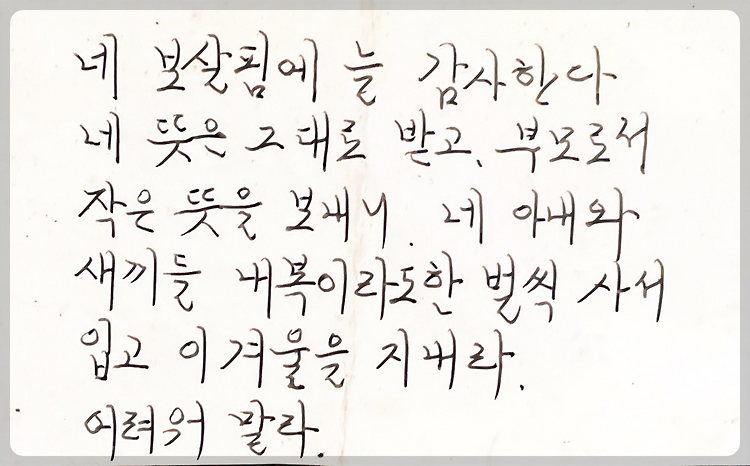 네 보살핌에 늘 감사한다
네 뜻은 그대로 받고, 부모로서
작은 뜻을 보내니. 네 아내와
새끼들 내복이라도 한 벌씩 사서
입고 이 겨울을 지내라.
어려워 말라.